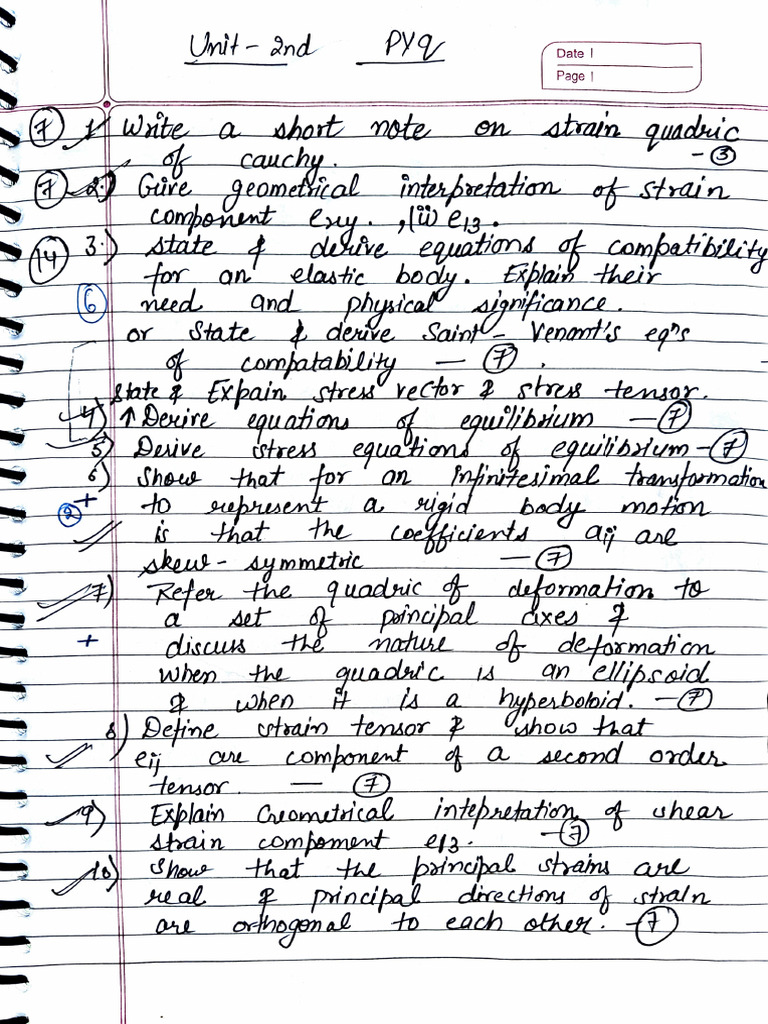 Unit - 2nd PYq
Date |
Page |
7 1. Write a short note on strain quadric
of cauchy. - 3
7 2.) Give geometrical interpretation of strain
component exy. , (ii) e13.
14 3.) State & derive equations of compatibility
for an elastic body. Explain their
6 need and physical significance.
or State & derive Saint - Venant's eqns
of compatability — 7 .
State & Expain stress vector & stress tensor.
4) ↑ Derive equations of equilibrium — 7
5) Derive stress equations of equilibrium - 7
6) Show that for an infinitesimal transformation
+ to represent a rigid body motion
2 is that the coefficients aij are
skew - symmetric — 7
7) Refer the quadric of deformation to
a set of principal axes &
+ discuss the nature of deformation
when the quadric is an ellipsoid
& when it is a hyperboloid. — 7
8) Define strain tensor & show that
eij are component of a second order
tensor. — 7
9) Explain Geometrical intepretation of shear
strain compoment e13. — 7
10) Show that the principal strains are
real & principal directions of strain
are orthogonal to each other. — 7